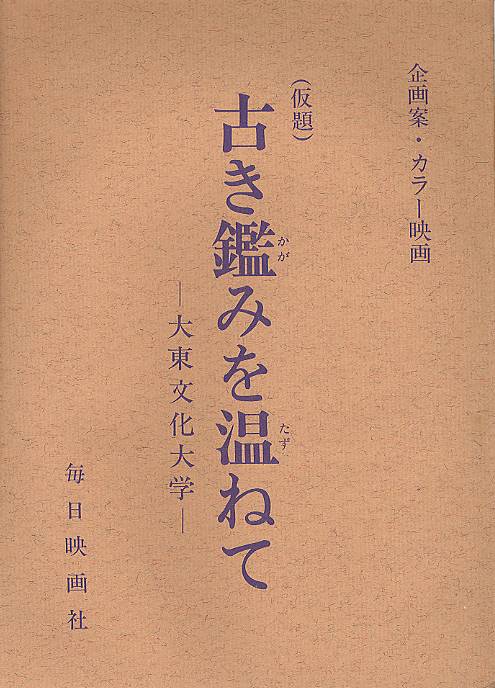 企画案・カラー映画
(仮題)
古き鑑みを温ねて
かが
たず
―大東文化大学―
毎日映画社